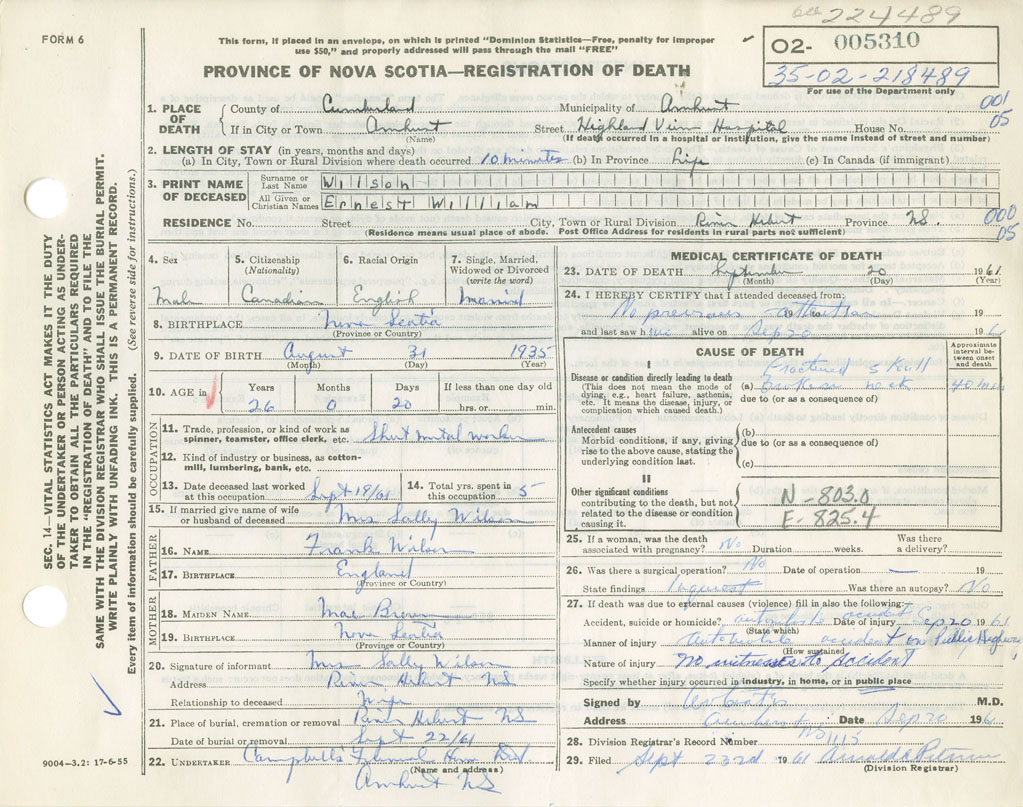 224489
FORM 6
This form, if placed in an envelope, on which is printed "Dominion Statistics—Free, penalty for improper
use $50," and properly addressed will pass through the mail "FREE"
02- 005310
35-02-218489
For use of the Department only
PROVINCE OF NOVA SCOTIA—REGISTRATION OF DEATH
1. PLACE OF DEATH County of Cumberland Municipality of Amherst 001
If in City or Town Amherst Street Highland View Hospital House No. 05
(Name) (If death occurred in a hospital or institution, give the name instead of street and number)
2. LENGTH OF STAY (in years, months and days)
(a) In City, Town or Rural Division where death occurred 10 minutes (b) In Province Life (c) In Canada (if immigrant)
3. PRINT NAME OF DECEASED Surname or Last Name Wilson
All Given or Christian Names Ernest William
RESIDENCE No. Street City, Town or Rural Division River Hebert Province NS. 000
(Residence means usual place of abode. Post Office Address for residents in rural parts not sufficient) 05
SEC. 14—VITAL STATISTICS ACT MAKES IT THE DUTY
OF THE UNDERTAKER OR PERSON ACTING AS UNDER-
TAKER TO OBTAIN ALL THE PARTICULARS REQUIRED
IN THE "REGISTRATION OF DEATH" AND TO FILE THE
SAME WITH THE DIVISION REGISTRAR WHO SHALL ISSUE THE BURIAL PERMIT.
WRITE PLAINLY WITH UNFADING INK. THIS IS A PERMANENT RECORD.
Every item of information should be carefully supplied. (See reverse side for instructions.)
4. Sex 5. Citizenship (Nationality) 6. Racial Origin 7. Single, Married, Widowed or Divorced (write the word)
Male Canadian English Married
8. BIRTHPLACE Nova Scotia
(Province or Country)
9. DATE OF BIRTH August 31 1935
(Month) (Day) (Year)
10. AGE in Years Months Days If less than one day old
26 0 20 hrs. or min.
OCCUPATION
11. Trade, profession, or kind of work as spinner, teamster, office clerk, etc. Sheet metal worker
12. Kind of industry or business, as cotton-mill, lumbering, bank, etc.
13. Date deceased last worked at this occupation Sept 18/61 14. Total yrs. spent in this occupation 5
15. If married give name of wife or husband of deceased Mrs Sally Wilson
FATHER
16. NAME Frank Wilson
17. BIRTHPLACE England
(Province or Country)
MOTHER
18. MAIDEN NAME Mae Brown
19. BIRTHPLACE Nova Scotia
(Province or Country)
20. Signature of informant Mrs Sally Wilson
Address River Hebert NS
Relationship to deceased Wife
21. Place of burial, cremation or removal River Hebert NS
Date of burial or removal Sept 22/61
22. UNDERTAKER Campbell's Funeral Home
(Name and address)
Amherst NS
9004-3.2: 17-6-55
MEDICAL CERTIFICATE OF DEATH
23. DATE OF DEATH September 20 1961
(Month) (Day) (Year)
24. I HEREBY CERTIFY that I attended deceased from:
No previous 19 to 19
and last saw him alive on Sep 20 196
CAUSE OF DEATH
Approximate interval between onset and death
I
Disease or condition directly leading to death
(This does not mean the mode of dying, e.g., heart failure, asthenia, etc. It means the disease, injury, or complication which caused death.)
Fractured skull
(a) Broken neck 40 mins
due to (or as a consequence of)
Antecedent causes
Morbid conditions, if any, giving rise to the above cause, stating the underlying condition last.
(b)
due to (or as a consequence of)
(c)
II
Other significant conditions
contributing to the death, but not related to the disease or condition causing it.
N-803.0
E-825.4
25. If a woman, was the death associated with pregnancy? No Duration weeks. Was there a delivery?
26. Was there a surgical operation? No Date of operation — 19
State findings Inquest Was there an autopsy? No
27. If death was due to external causes (violence) fill in also the following:
Accident, suicide or homicide? automobile accident Date of injury Sep 20 1961
(State which)
Manner of injury Automobile accident on Public Highway
(How sustained)
Nature of injury No witnesses to accident
Specify whether injury occurred in industry, in home, or in public place
Signed by M.D.
Address Amherst Date Sep 20 196
NS
28. Division Registrar's Record Number 1115
29. Filed Sept 23rd 1961
(Division Registrar)